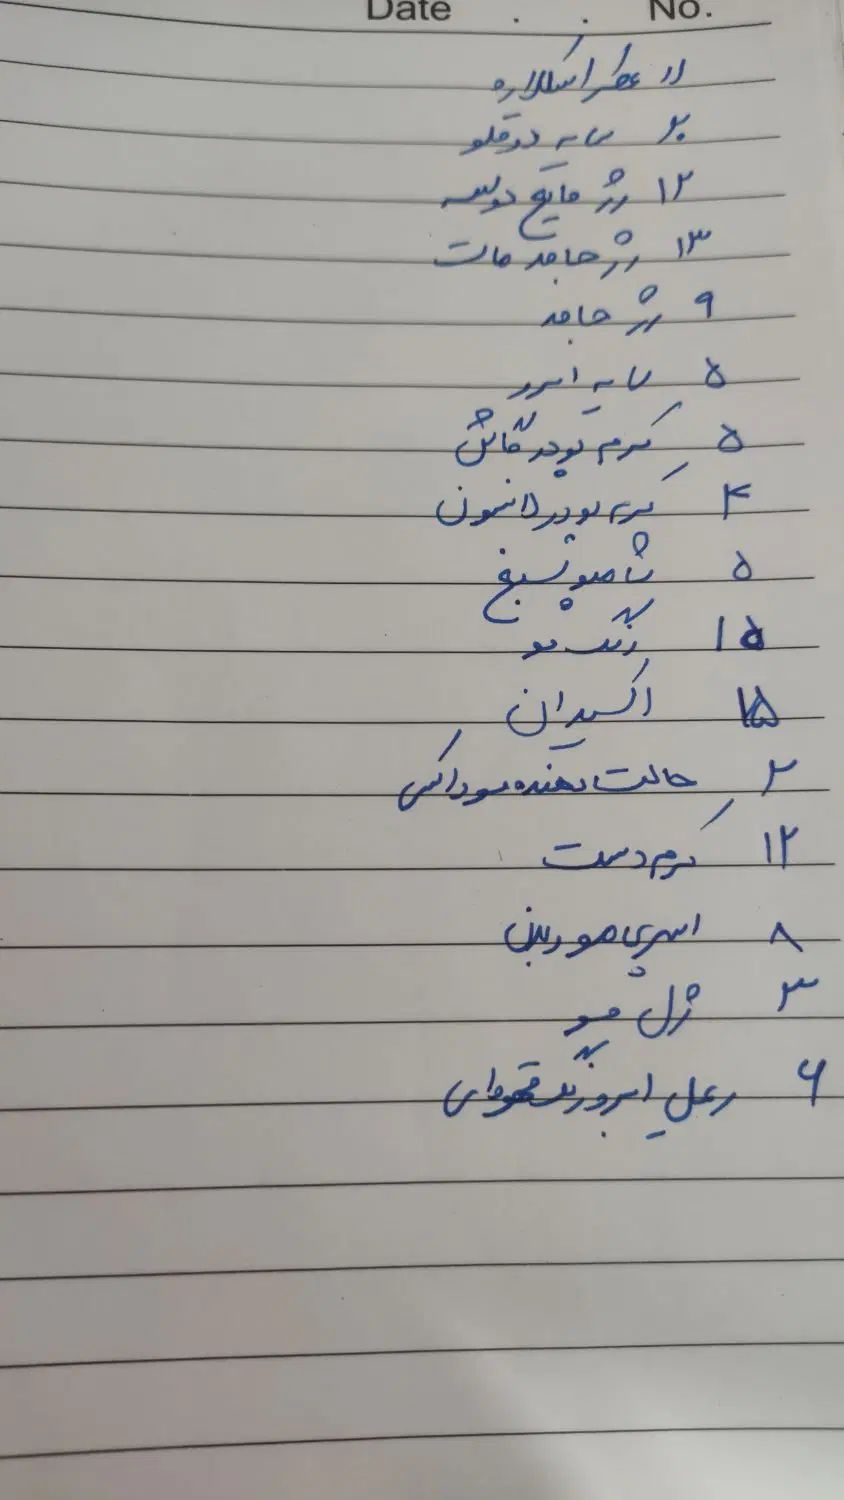 Date . . No.
عطر اسکلاره
۲۰ سایه دوقلو
۱۲ رژ مایع دولسه
۱۳ رژ جامد مات
۹ رژ جامد
۵ سایه ابرو
۵ کرم پودر کاش
۴ کرم پودر
۵ شامپو
۱۵ رنگ مو
۱۵ اکسیدان
۲ حالت دهنده مو
۱۲ کرم دست
۸ اسپری مو
۳ ژل مو
۶ ریمل ابرو رنگ قهوه‌ای